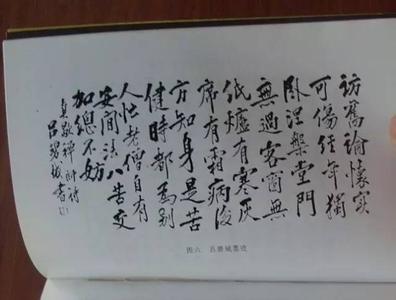 訪舊論懷實
可傷經年獨
臥涅槃堂門
無過客窗無
紙爐有寒灰
席有霜病後
方知身是苦
健時都為別
人忙老僧自有
安閒法八苦交
加總不妨
真歇禪師詩
呂碧城書
图六 吕碧城墨迹